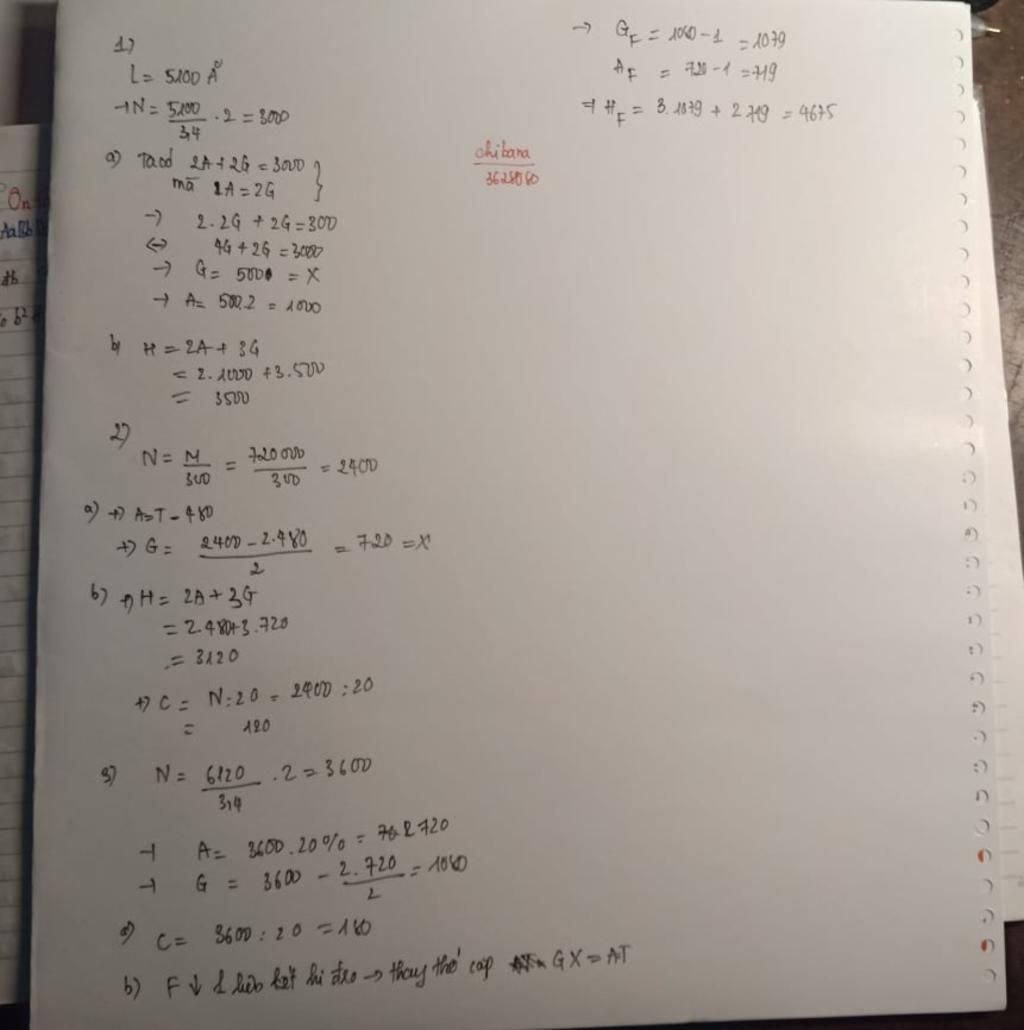 1)
L = 5100 Å
→ N = 5100/3,4 . 2 = 3000
a) Ta có 2A + 2G = 3000 }
mà A = 2G
→ 2.2G + 2G = 300
<=> 4G + 2G = 3000
→ G = 500 = X
→ A = 500.2 = 1000
b) H = 2A + 3G
= 2.1000 + 3.500
= 3500
2)
N = M/300 = 720000/300 = 2400
a) +) A = T = 480
+) G = (2400 - 2.480)/2 = 720 = X
b) +) H = 2A + 3G
= 2.480+3.720
= 3120
+) C = N:20 = 2400 : 20
= 120
3) N = 6120/3,4 . 2 = 3600
→ A = 3600.20% = 720
→ G = 3600 - 2.720/2 = 1080
a) C = 3600 : 20 = 180
b) F ↓ 1 liên kết hi đro → thay thế cặp GX = AT
→ G_F = 1080 - 1 = 1079
A_F = 720 - 1 = 719
=> H_F = 3.1079 + 2.719 = 4675
chibana
3628080
Ôn
AaBb